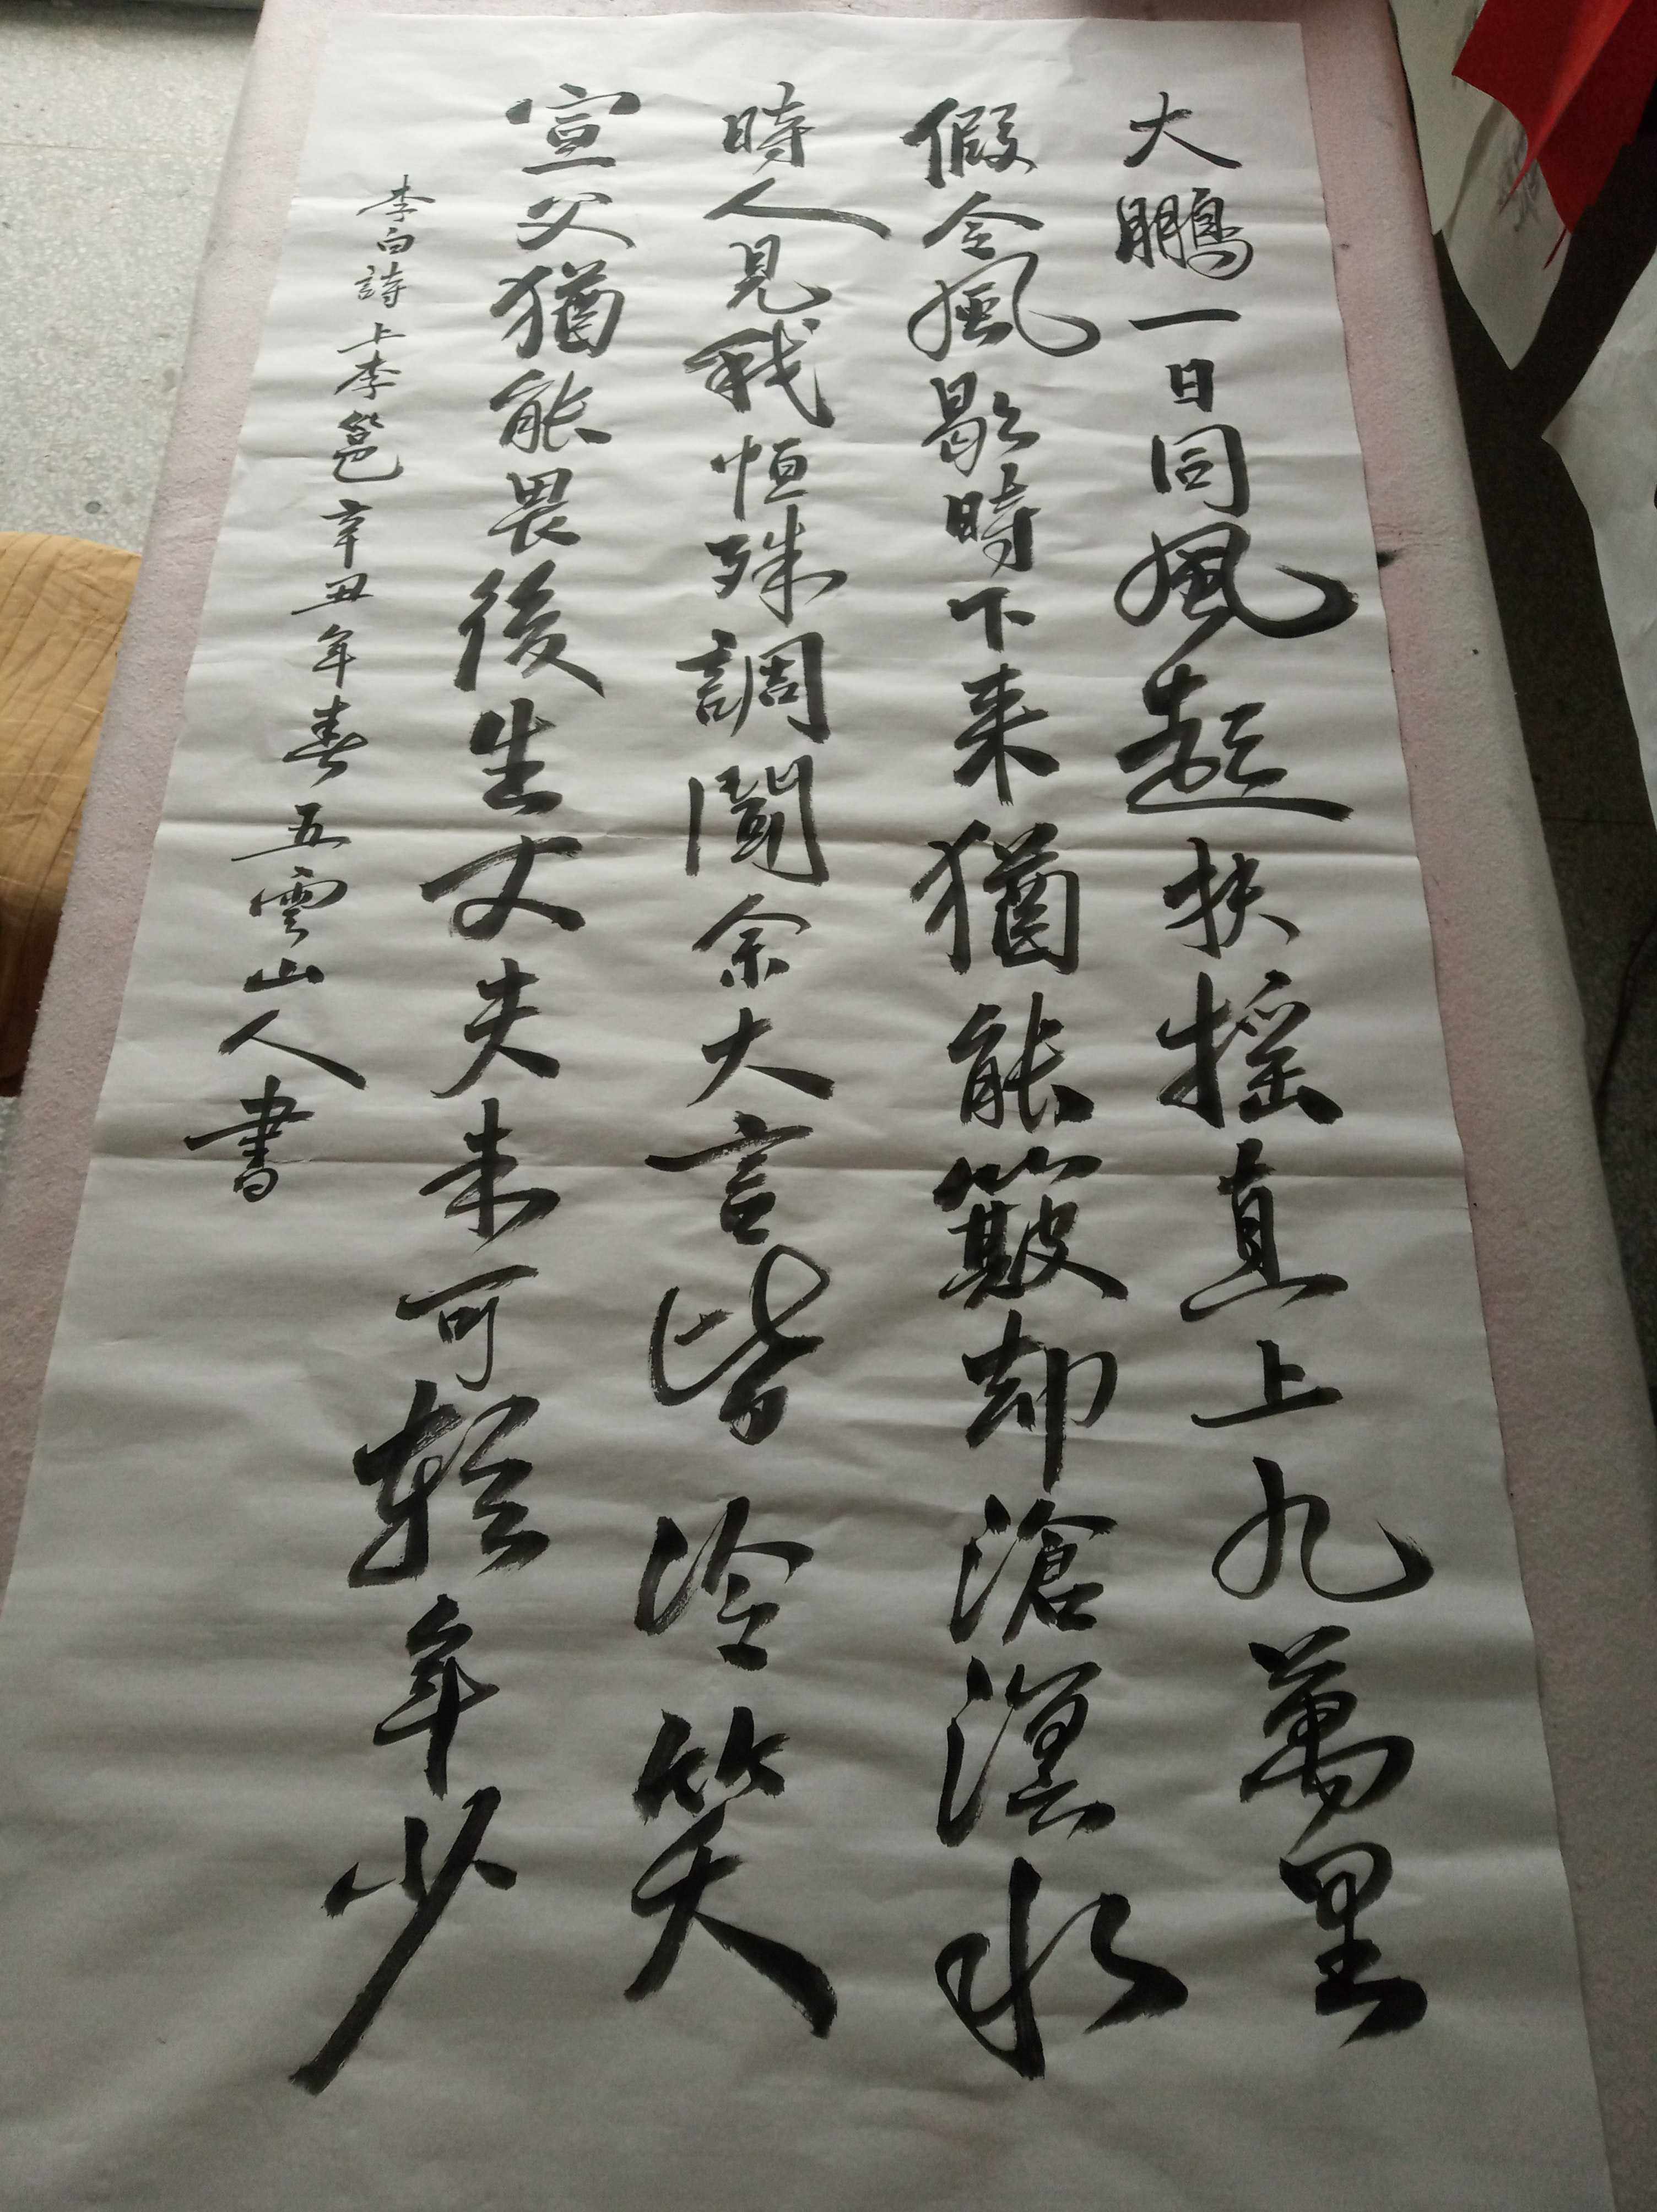 大鵬一日同風起扶摇直上九萬里
假令風歇時下来猶能簸却滄溟水
時人見我恒殊調聞余大言皆冷笑
宣父猶能畏後生丈夫未可輕年少
李白詩上李邕辛丑年春五雲山人書